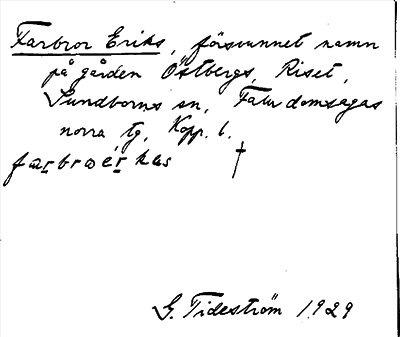 Farbror Eriks, försvunnet namn
på gården Östbergs, Riset,
Sundborns sn, Falu domsagas
norra tg, Kopp. l.
farbroérkas †
G. Tideström 1929